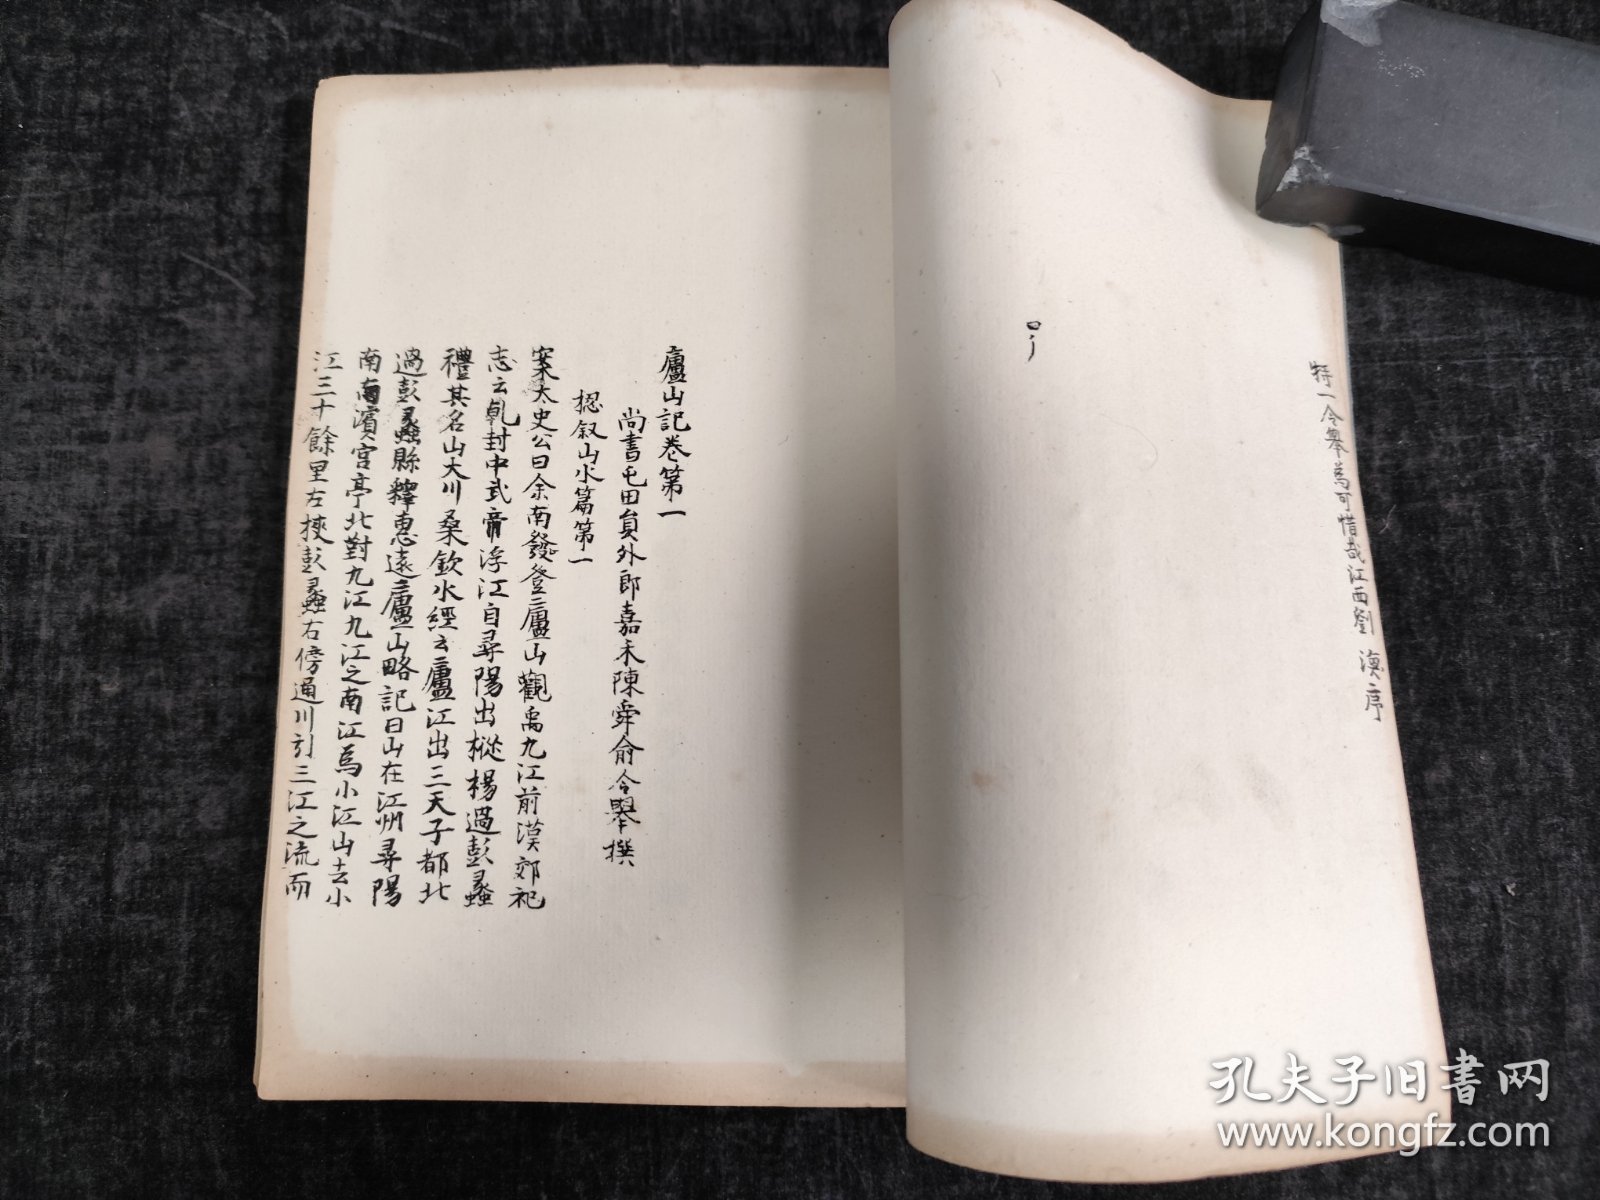 特一令舉為可惜哉江西劉　渙序
廬山記卷第一
尚書屯田員外郎嘉禾陳舜俞令舉撰
揔叙山水篇第一
案太史公曰余南發登廬山觀禹九江前漢郊祀
志云乹封中武帝浮江自尋陽出樅楊過彭蠡
禮其名山大川桑欽水經云廬江出三天子都北
過彭蠡縣釋惠遠廬山略記曰山在江州尋陽
南南濱宮亭北對九江九江之南江為小江山去小
江三十餘里左挾彭蠡右傍通川引三江之流而
孔夫子旧書网
www.kongfz.com